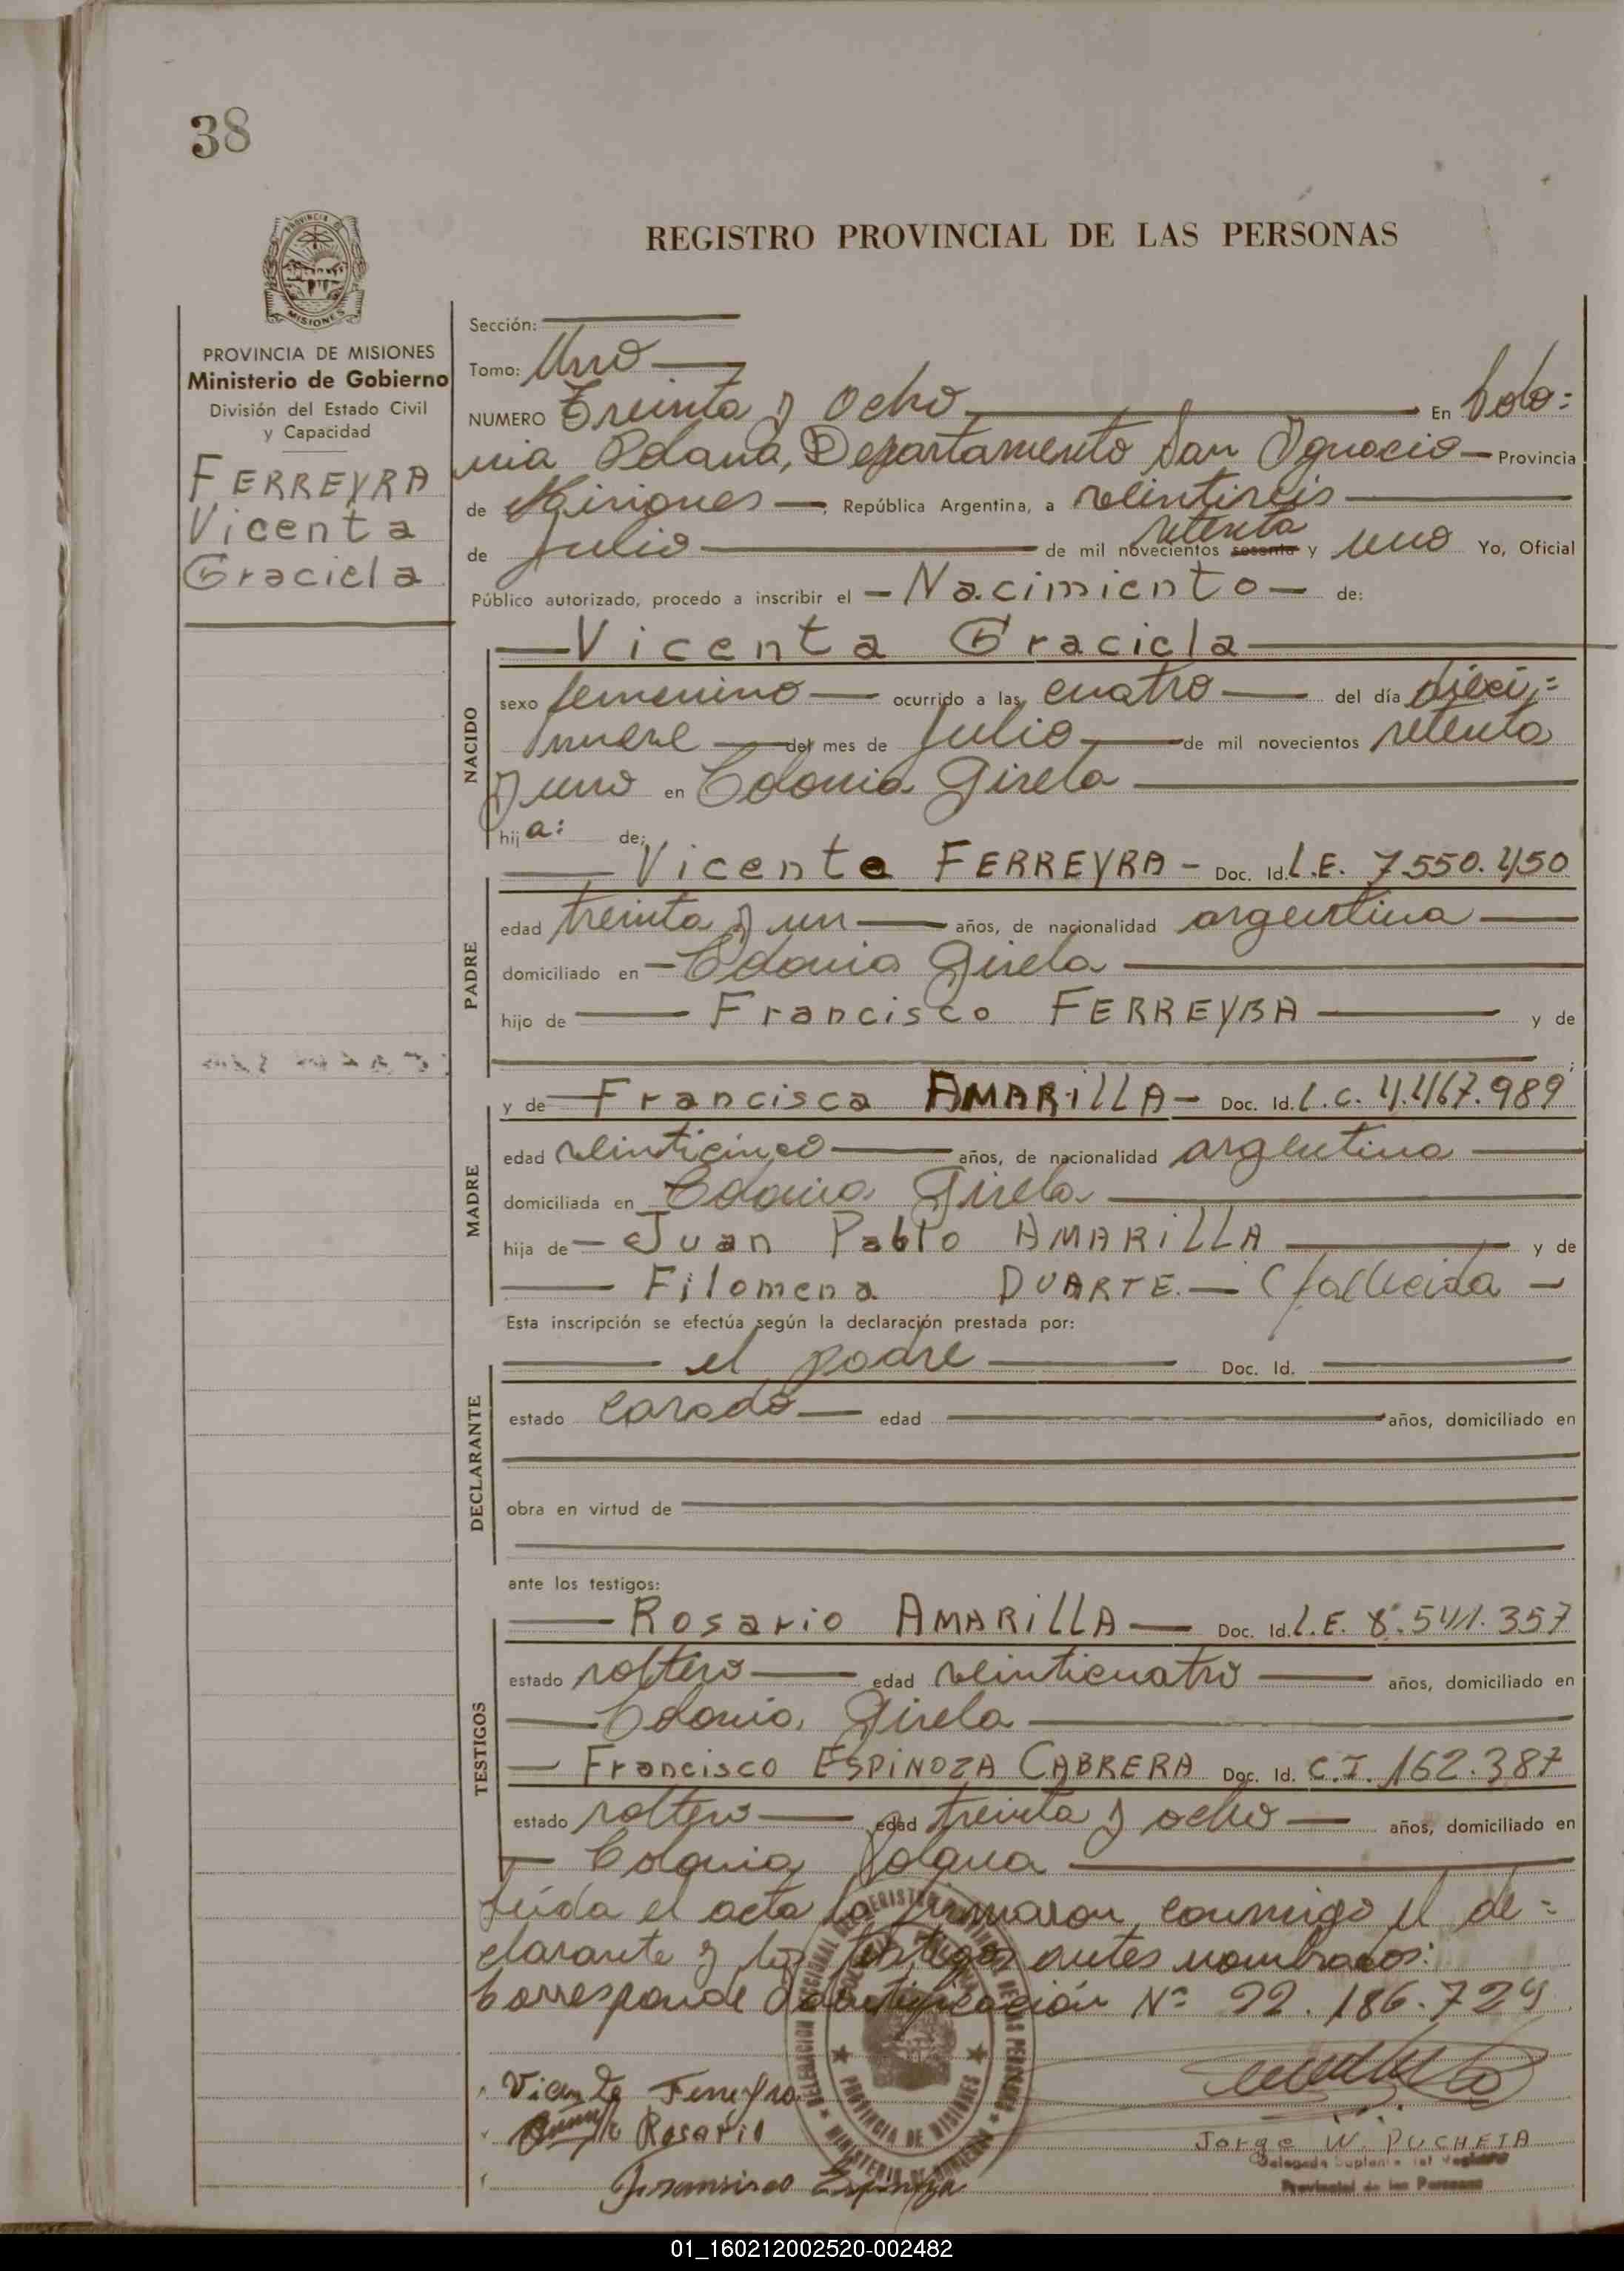 38
PROVINCIA DE MISIONES
Ministerio de Gobierno
División del Estado Civil
y Capacidad
FERREYRA
Vicenta
Graciela
REGISTRO PROVINCIAL DE LAS PERSONAS
Sección:
Tomo: Uno
NUMERO Treinta y ocho En Colo=
nia Polana, Departamento San Ignacio Provincia
de Misiones, República Argentina, a veintiseis
de Julio de mil novecientos setenta sesenta y uno Yo, Oficial
Público autorizado, procedo a inscribir el Nacimiento de:
Vicenta Graciela
NACIDO
sexo femenino ocurrido a las cuatro del día dieci=
nueve del mes de Julio de mil novecientos setenta
y uno en Colonia Gisela
hija: de:
PADRE
Vicente FERREYRA - Doc. Id. L.E. 7.550.450
edad treinta y un años, de nacionalidad argentina
domiciliado en Colonia Gisela
hijo de Francisco FERREYRA y de
MADRE
y de Francisca AMARILLA - Doc. Id. L.C. 4.467.989
edad veinticinco años, de nacionalidad argentina
domiciliada en Colonia Gisela
hija de Juan Pablo AMARILLA y de
Filomena DUARTE - (fallecida -
Esta inscripción se efectúa según la declaración prestada por:
DECLARANTE
el padre Doc. Id.
estado casado edad años, domiciliado en
obra en virtud de
ante los testigos:
TESTIGOS
Rosario AMARILLA - Doc. Id. L.E. 8.541.357
estado soltero edad veinticuatro años, domiciliado en
Colonia Gisela
Francisco ESPINOZA CABRERA Doc. Id. C.I. 162.387
estado soltero edad treinta y ocho años, domiciliado en
Colonia Polana
Leída el acta la firmaron conmigo el de=
clarante y los testigos antes nombrados:
Corresponde Identificación Nº 22.186.724
Vicente Ferreyra
Rosario
Fransisco Espinoza
Jorge W. PUCHETA
Delegado Suplente del Registro
Provincial de las Personas
PROVINCIA DE MISIONES
01_160212002520-002482